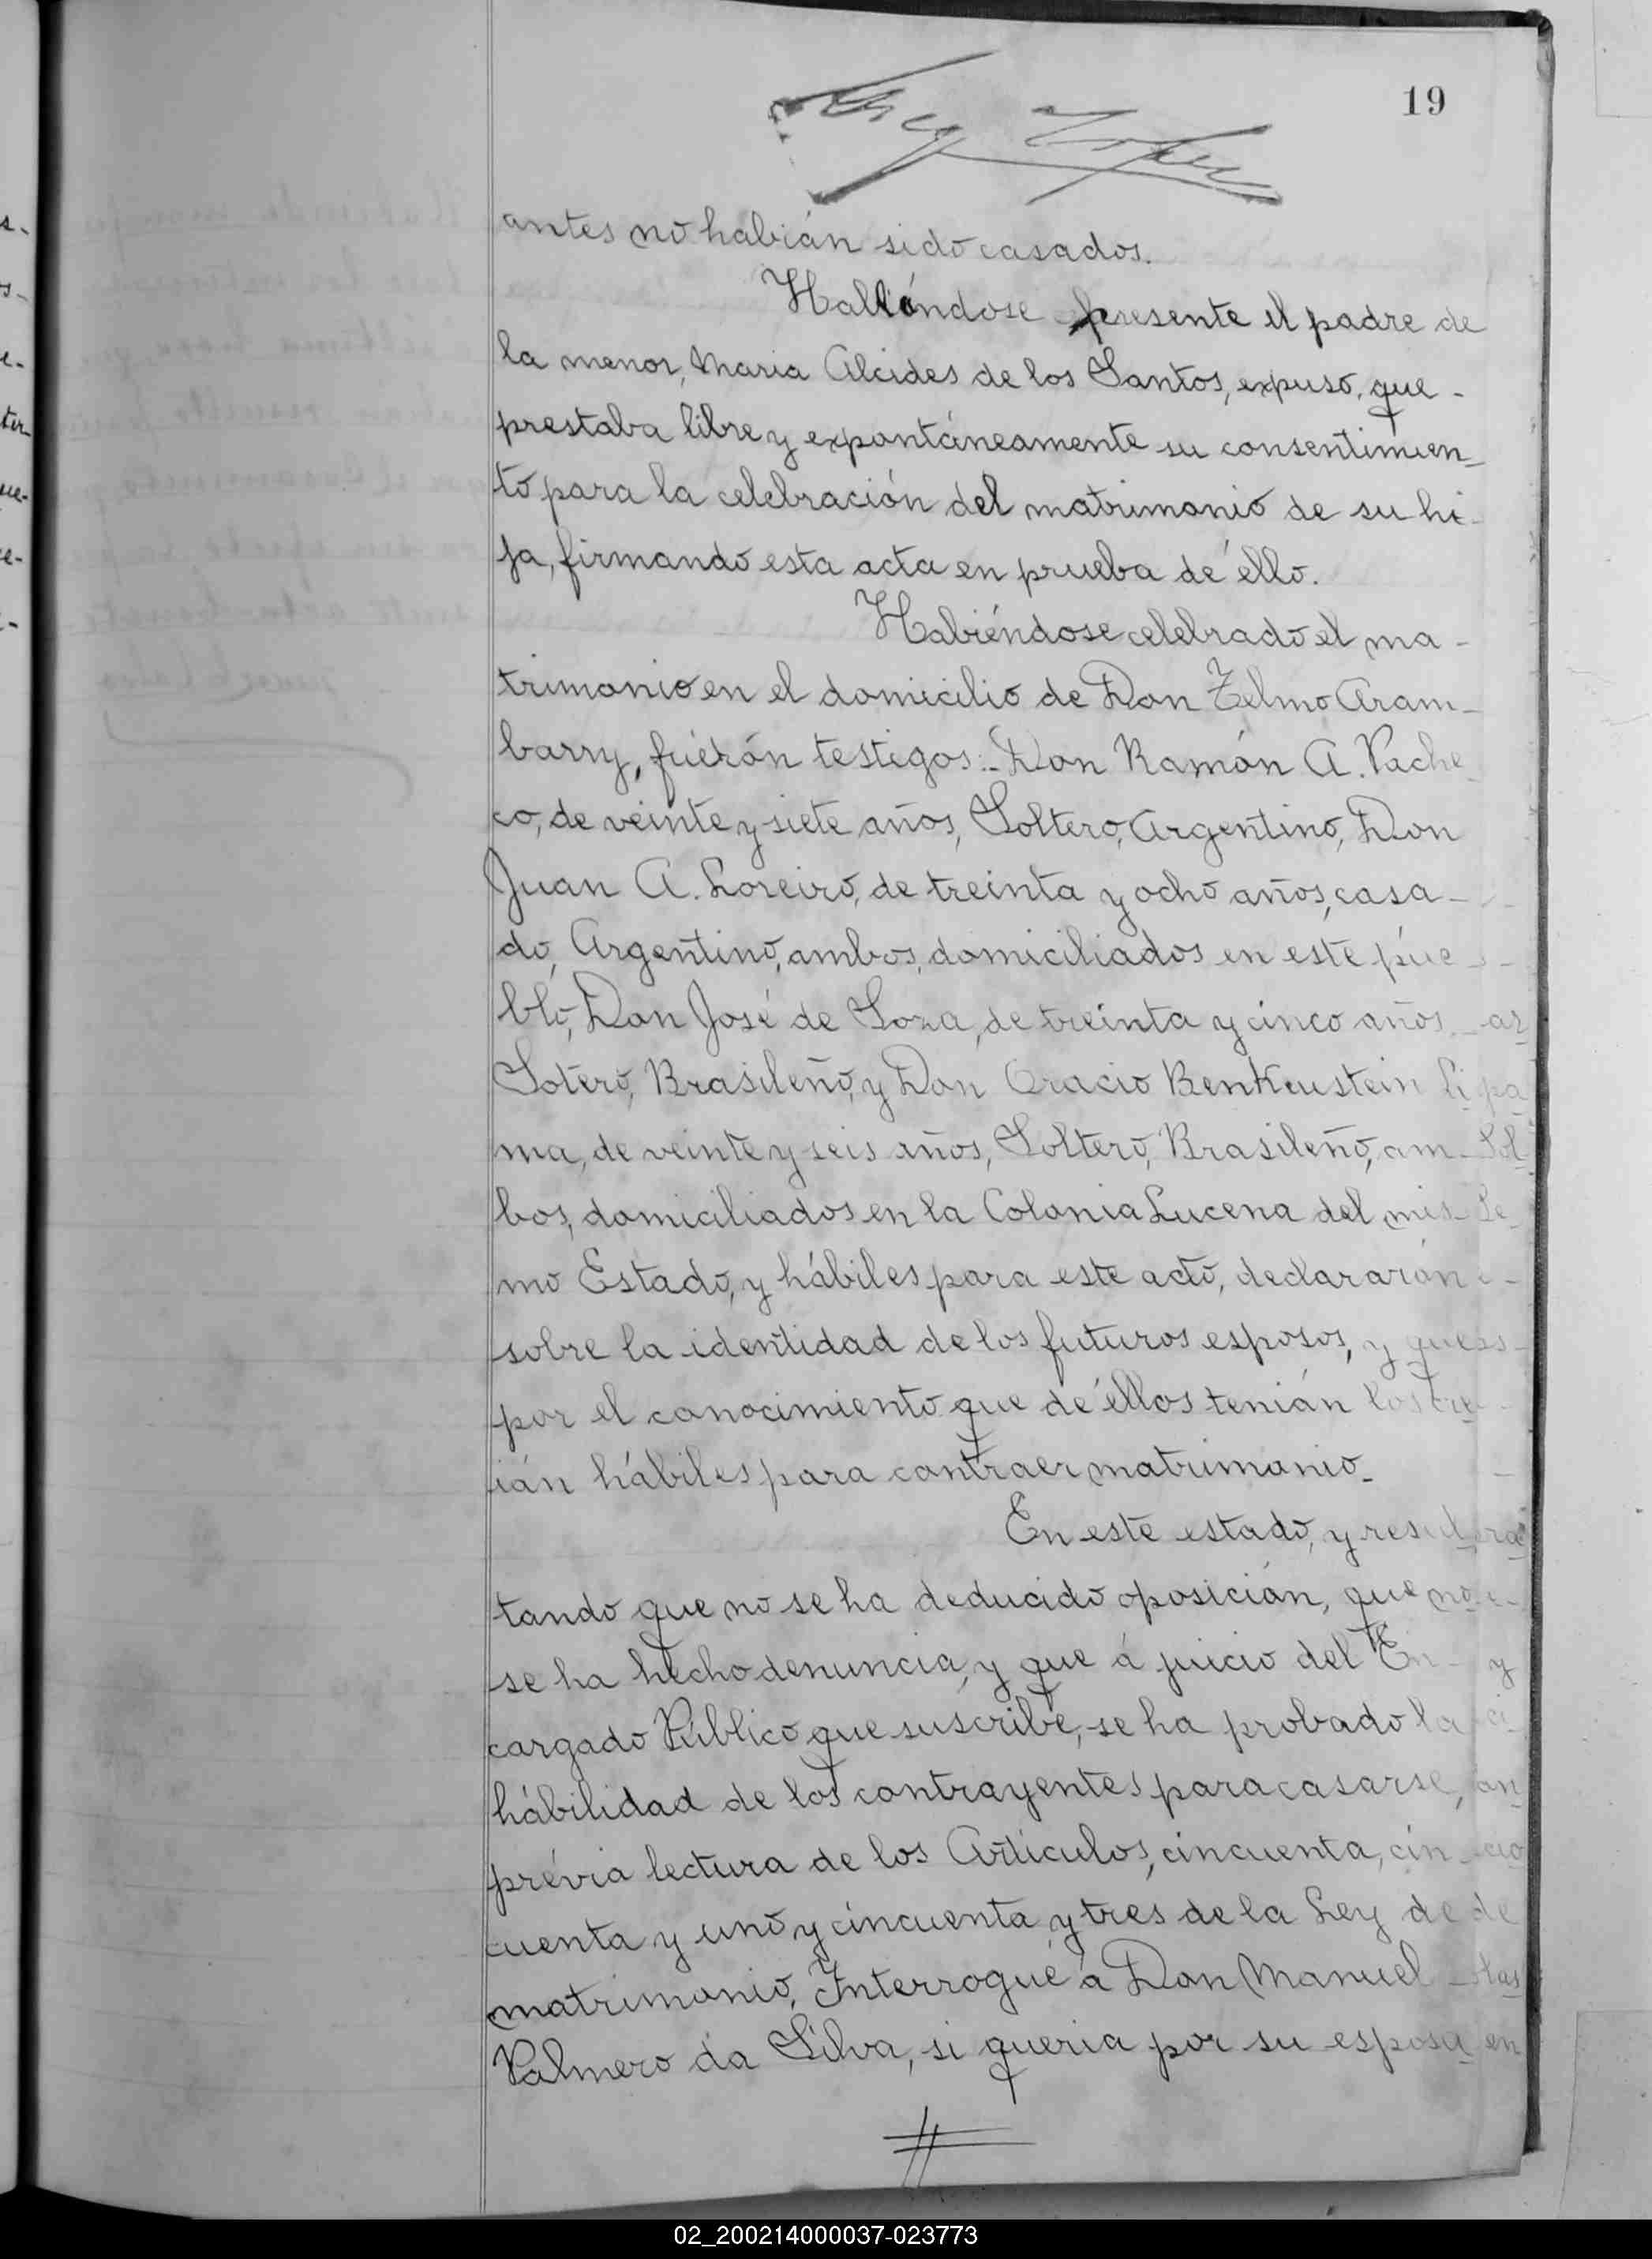 19
antes no habián sido casados.
Hallándose presente el padre de
la menor, Maria Alcides de los Santos, expuso, que -
prestaba libre y expontáneamente su consentimien_
to para la celebración del matrimonio de su hi_
ja, firmando esta acta en prueba de éllo.
Habiéndose celebrado el ma -
trimonio en el domicilio de Don Telmo Aram_
barry, fuérón testigos:_Don Ramón A. Pache_
co, de veinte y siete años, Soltero, Argentino, Don
Juan A. Loreiro, de treinta y ocho años, casa -
do, Argentino, ambos, domiciliados en este pue
blo, Don José de Soza, de treinta y cinco años.
Sotero, Brasileño, y Don Oracio Benkeustein Li
ma, de veinte y seis años, Soltero, Brasileño, am_
bos, domiciliados en la Colonia Lucena del mis_
mo Estado, y hábiles para este acto, declararán
sobre la identidad de los futuros esposos, y que
por el conocimiento que de éllos tenián los cre
ián hábiles para contraer matrimonio_
En este estado, y resul_
tando que no se ha deducido oposición, que no
se ha hecho denuncia, y que á juicio del En_
cargado Público que suscribe, se ha probado la
hábilidad de los contrayentes para casarse,
prévia lectura de los Artículos, cincuenta, cin_
cuenta y uno y cincuenta y tres de la Ley de
matrimonio, Interrogué a Don Manuel
Palmero da Silva, si queria por su esposa
02_200214000037-023773